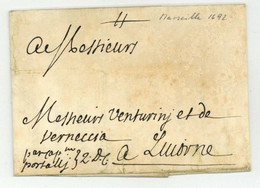 Marseille 1692
A Messieurs
Messieurs Venturinj et de
Verneccia
A Livorne